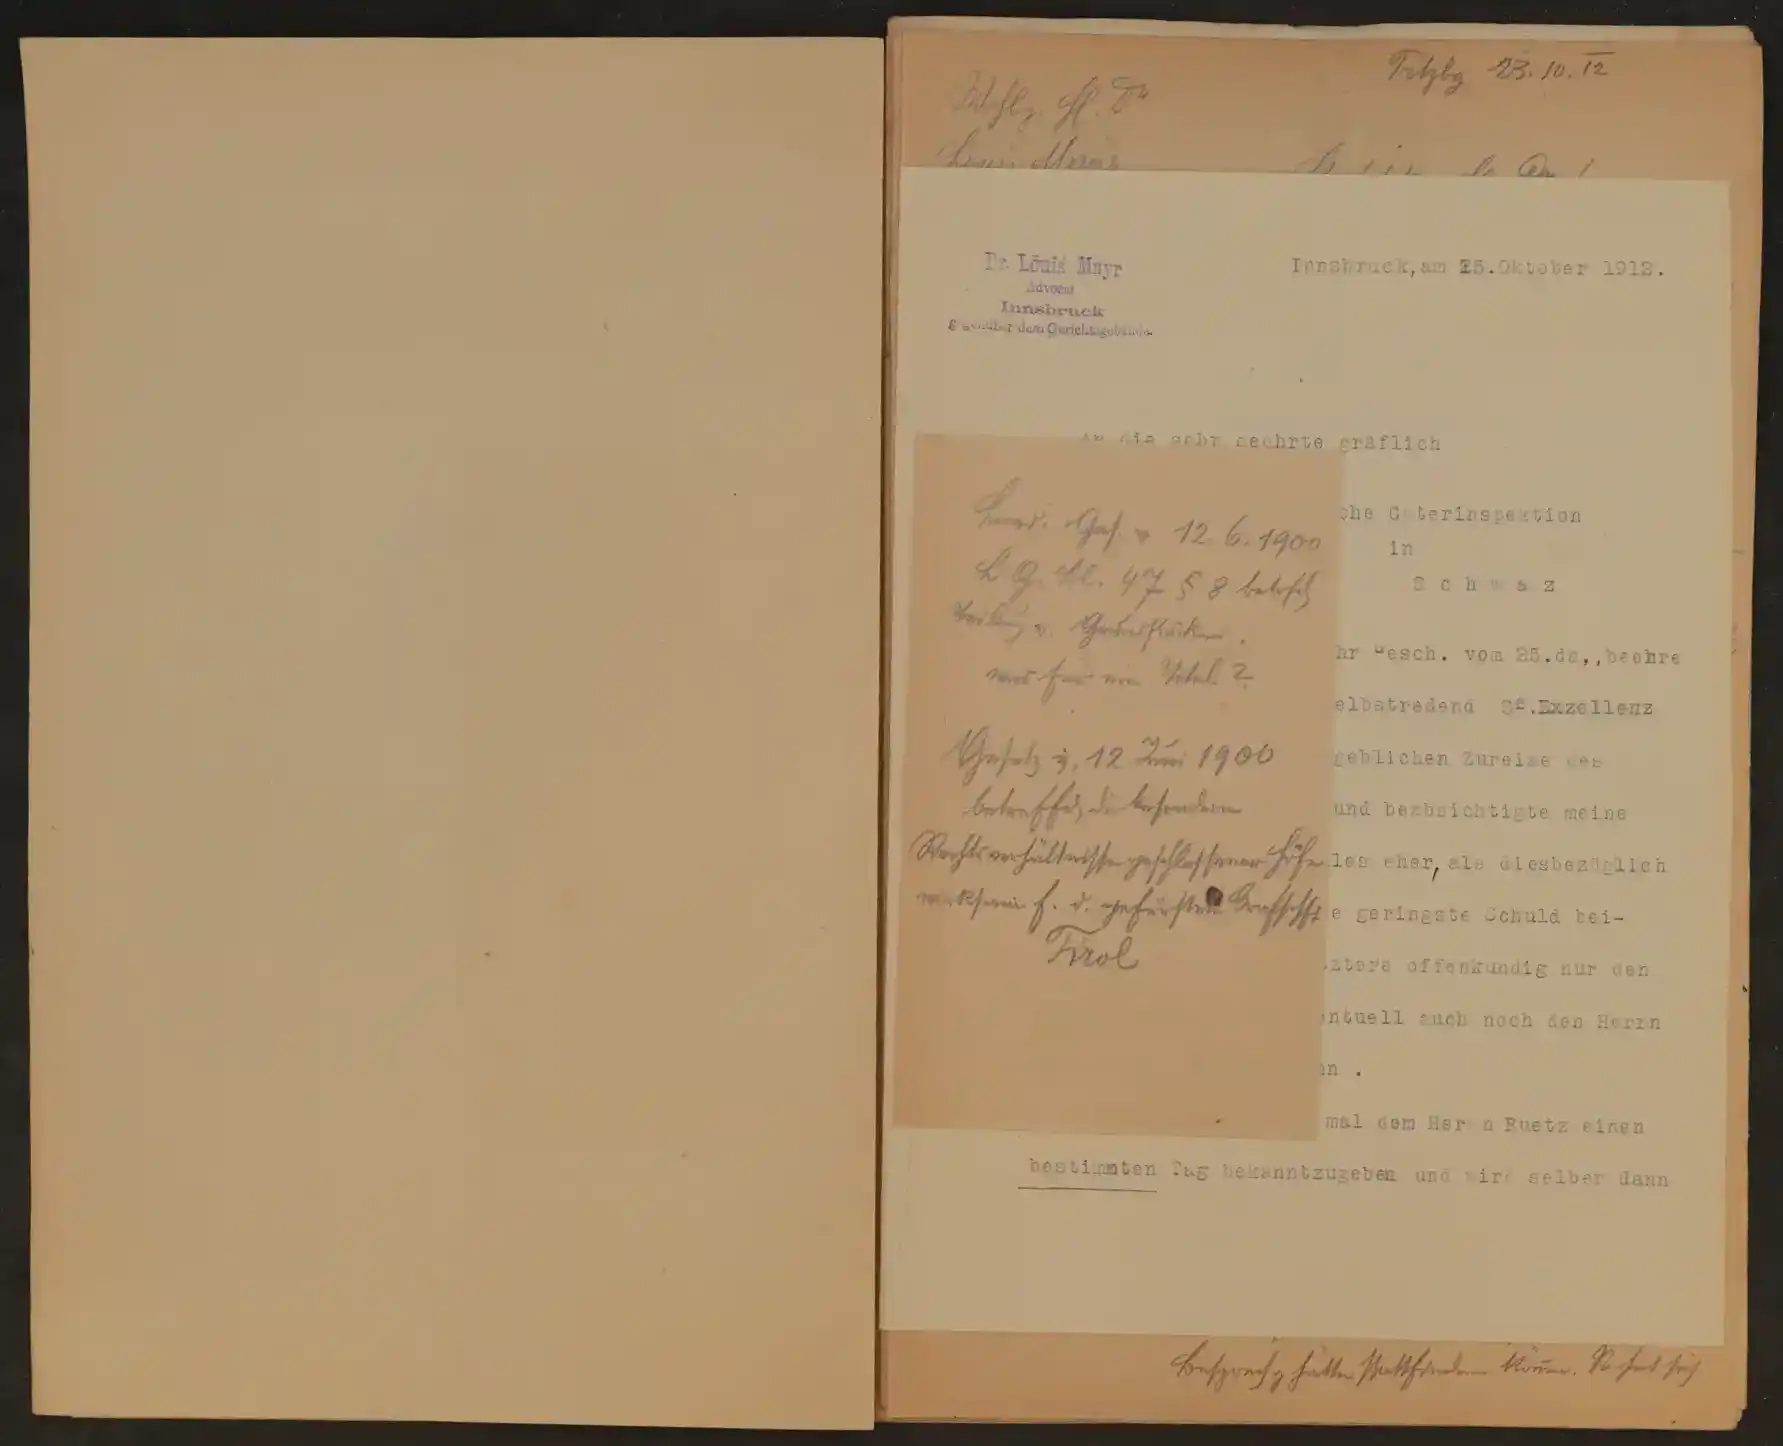 Trtzbg 23.10.12
Wohlg. H. Dr
Louis Mayr
Dr. Louis Mayr
Advocat
Innsbruck
gegenüber dem Gerichtsgebäude.
Innsbruck, am 25.Oktober 1912.
An die sehr geehrte gräflich
che Güterinspektion
in
Schwaz
hr Gesch. vom 25.ds,,beehre
elbstredend Se.Exzellenz
geblichen Zureise des
und beabsichtigte meine
les eher, als diesbezüglich
e geringste Schuld bei-
tztere offenkundig nur den
entuell auch noch den Herrn
nn .
mal dem Herrn Ruetz einen
bestimmten Tag bekanntzugeben und wird selber dann
Land. Ges. v 12.6.1900
L G. Bl. 47 § 8 betreff
Teilung v. Grundstücken.
was für ein Titel?
Gesetz v. 12 Juni 1900
betreffd, die besonderen
Rechtsverhältnisse geschlossener Höfe
wirksam f. d. gefürstete Grafschft
Tirol
Besprechg hätte stattfinden können.